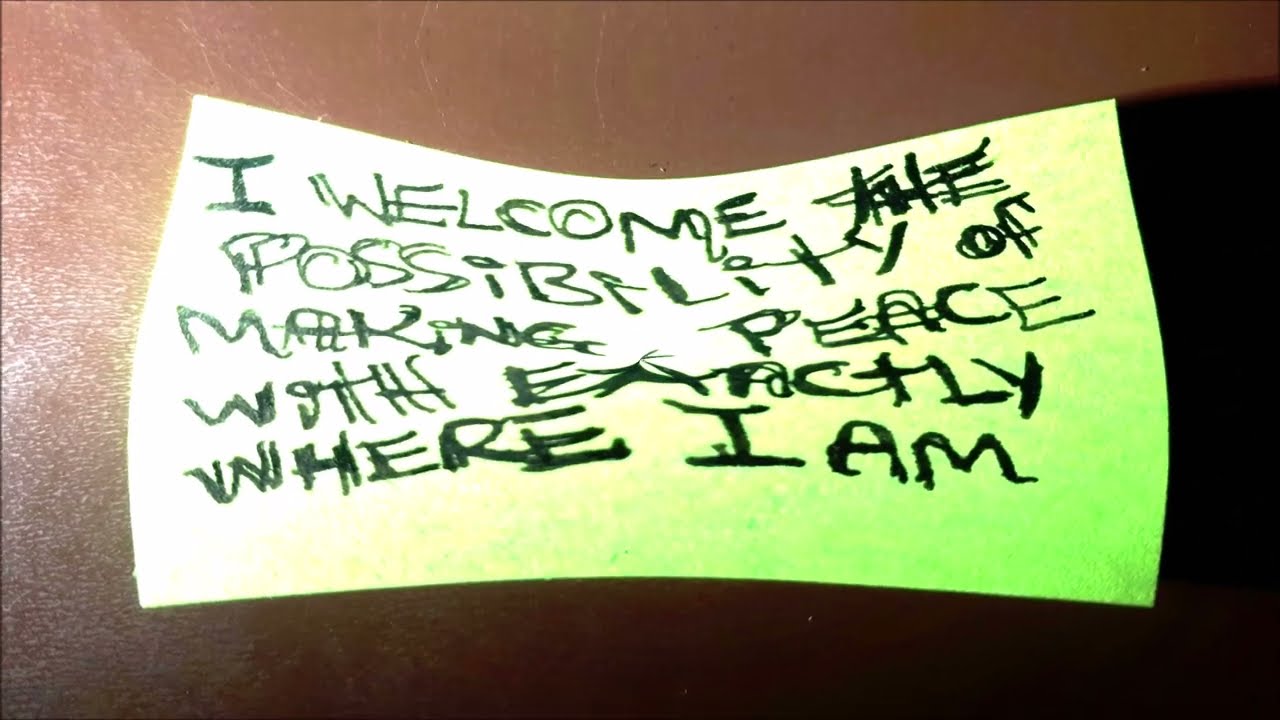 I WELCOME THE
POSSiBiLiTY OF
MAKiNG PEACE
WiTH EXACTLY
WHERE I AM